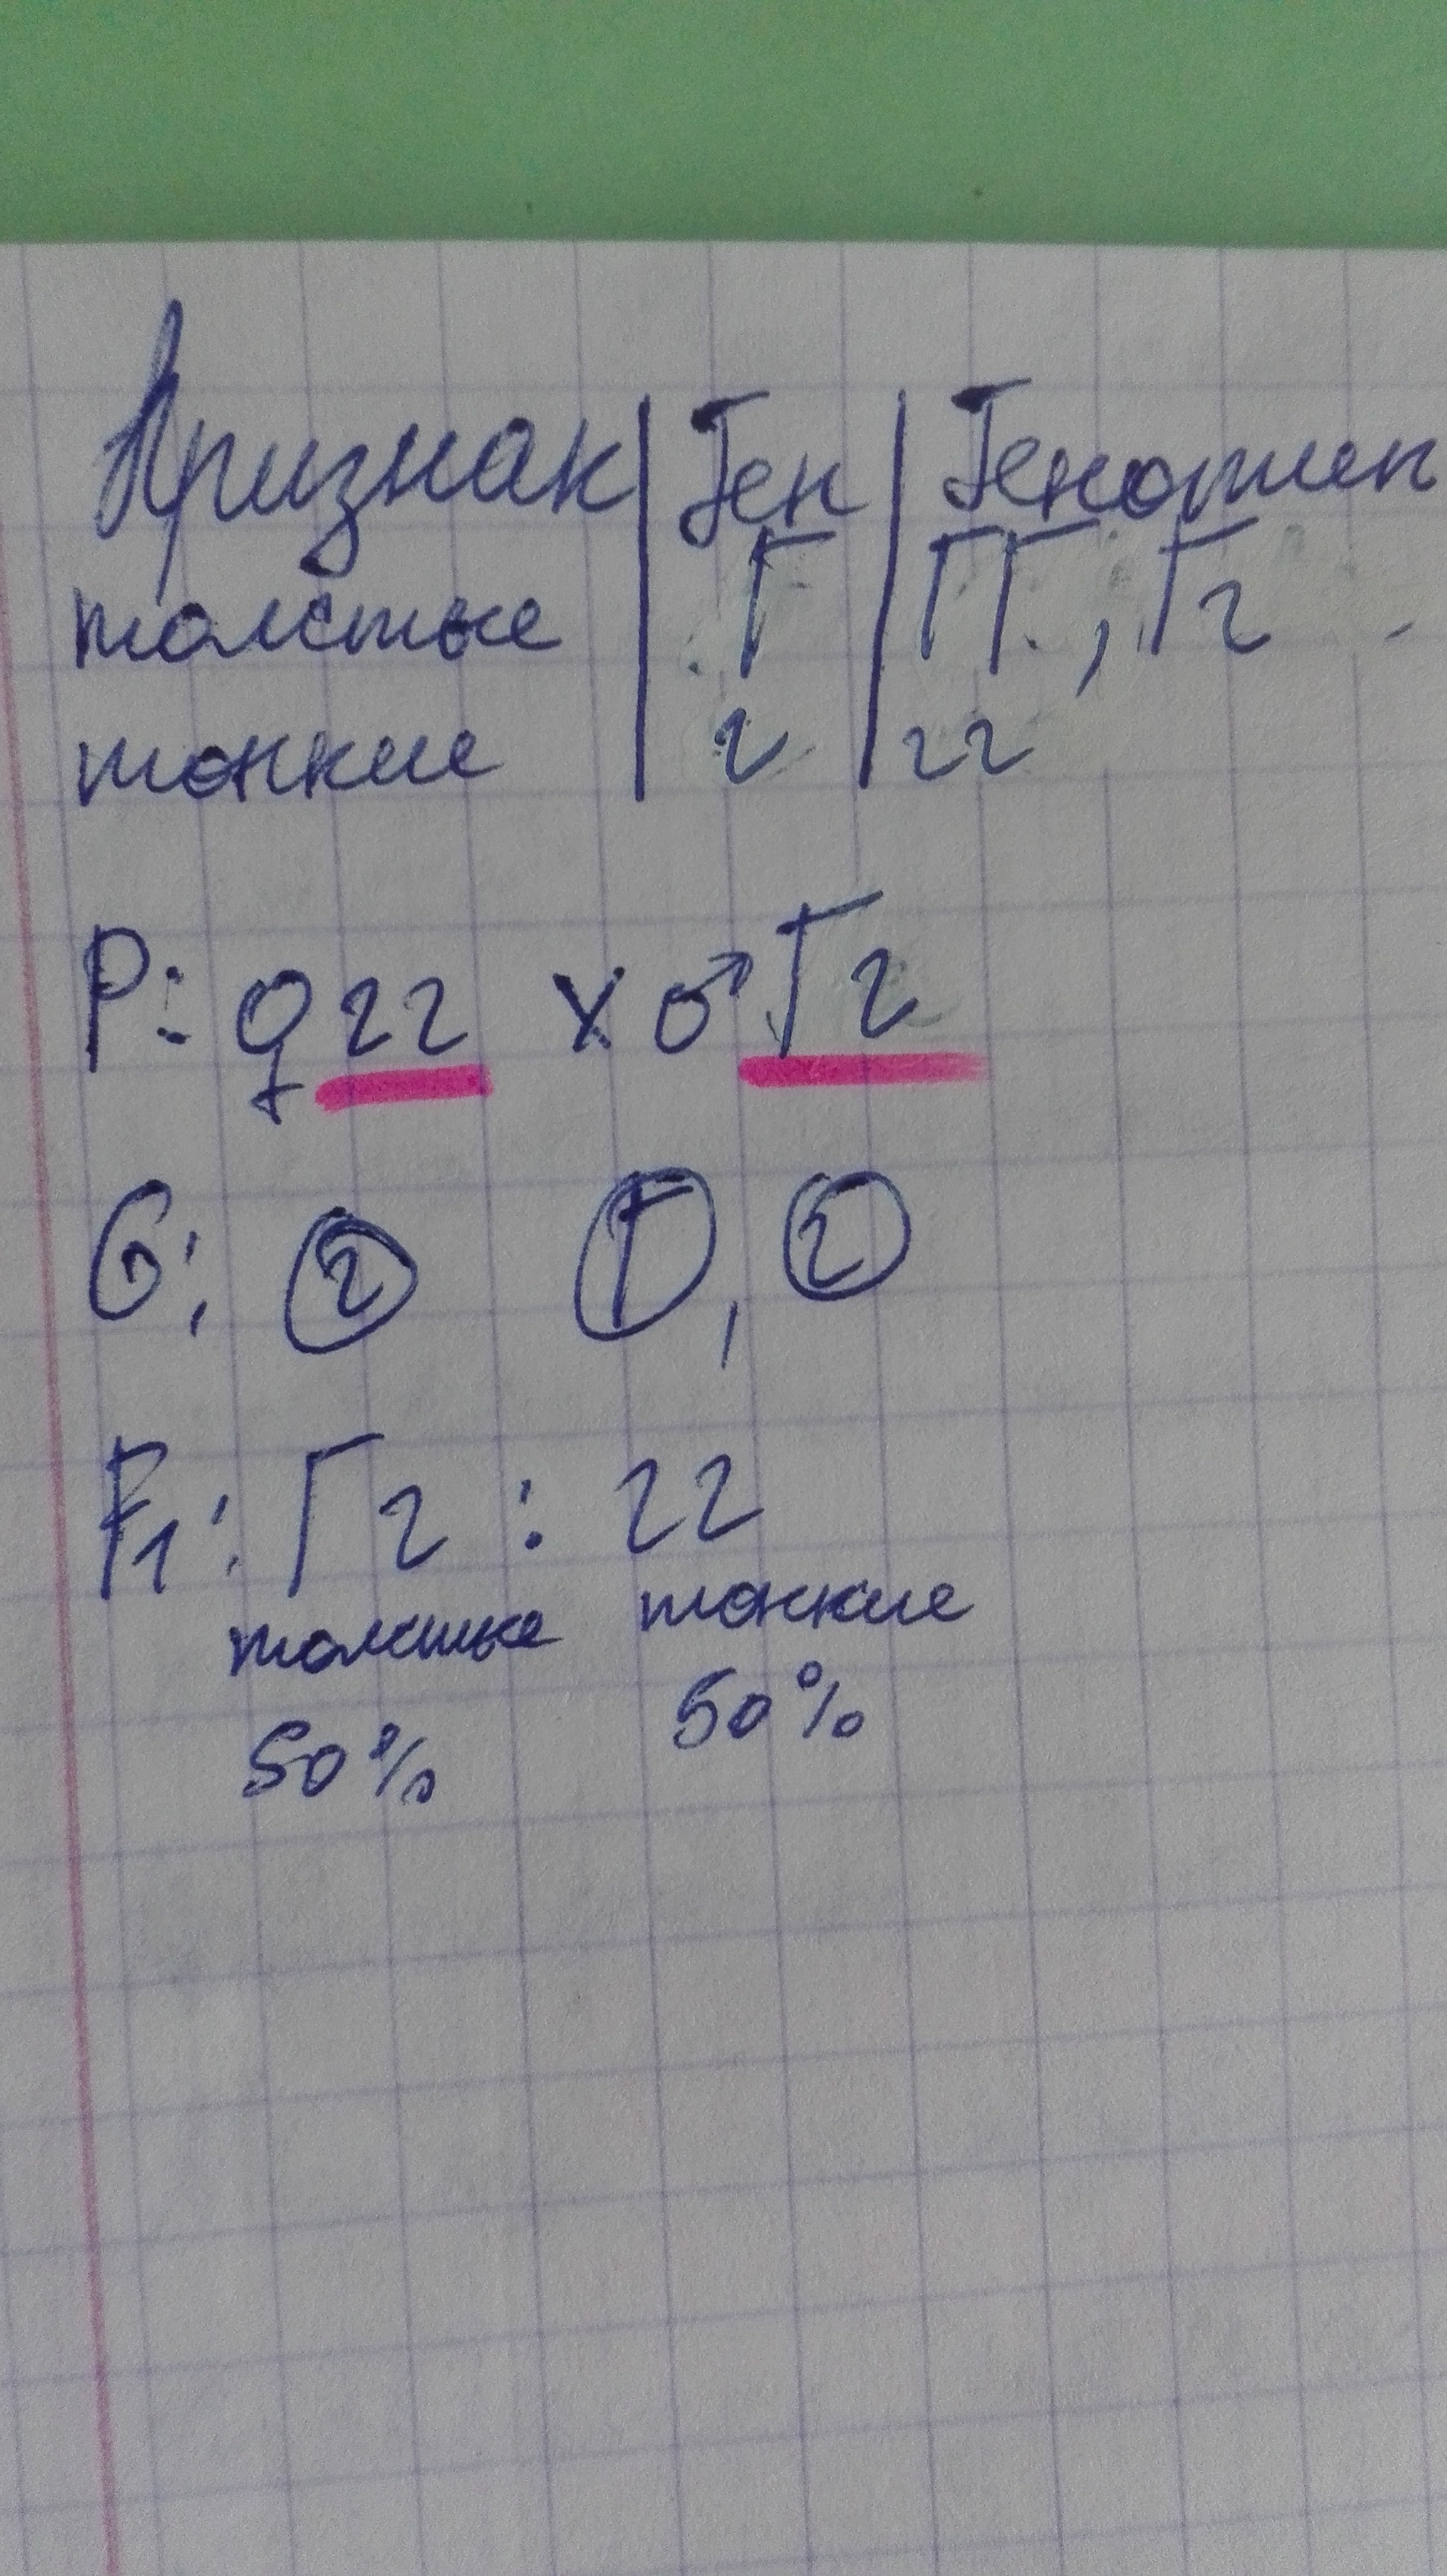 Признак | Ген | Генотип
толстые | Г | ГГ, Гг
тонкие | г | гг
P: ♀ гг x ♂ Гг
G: г Г, г
F1: Гг : гг
толстые тонкие
50% 50%